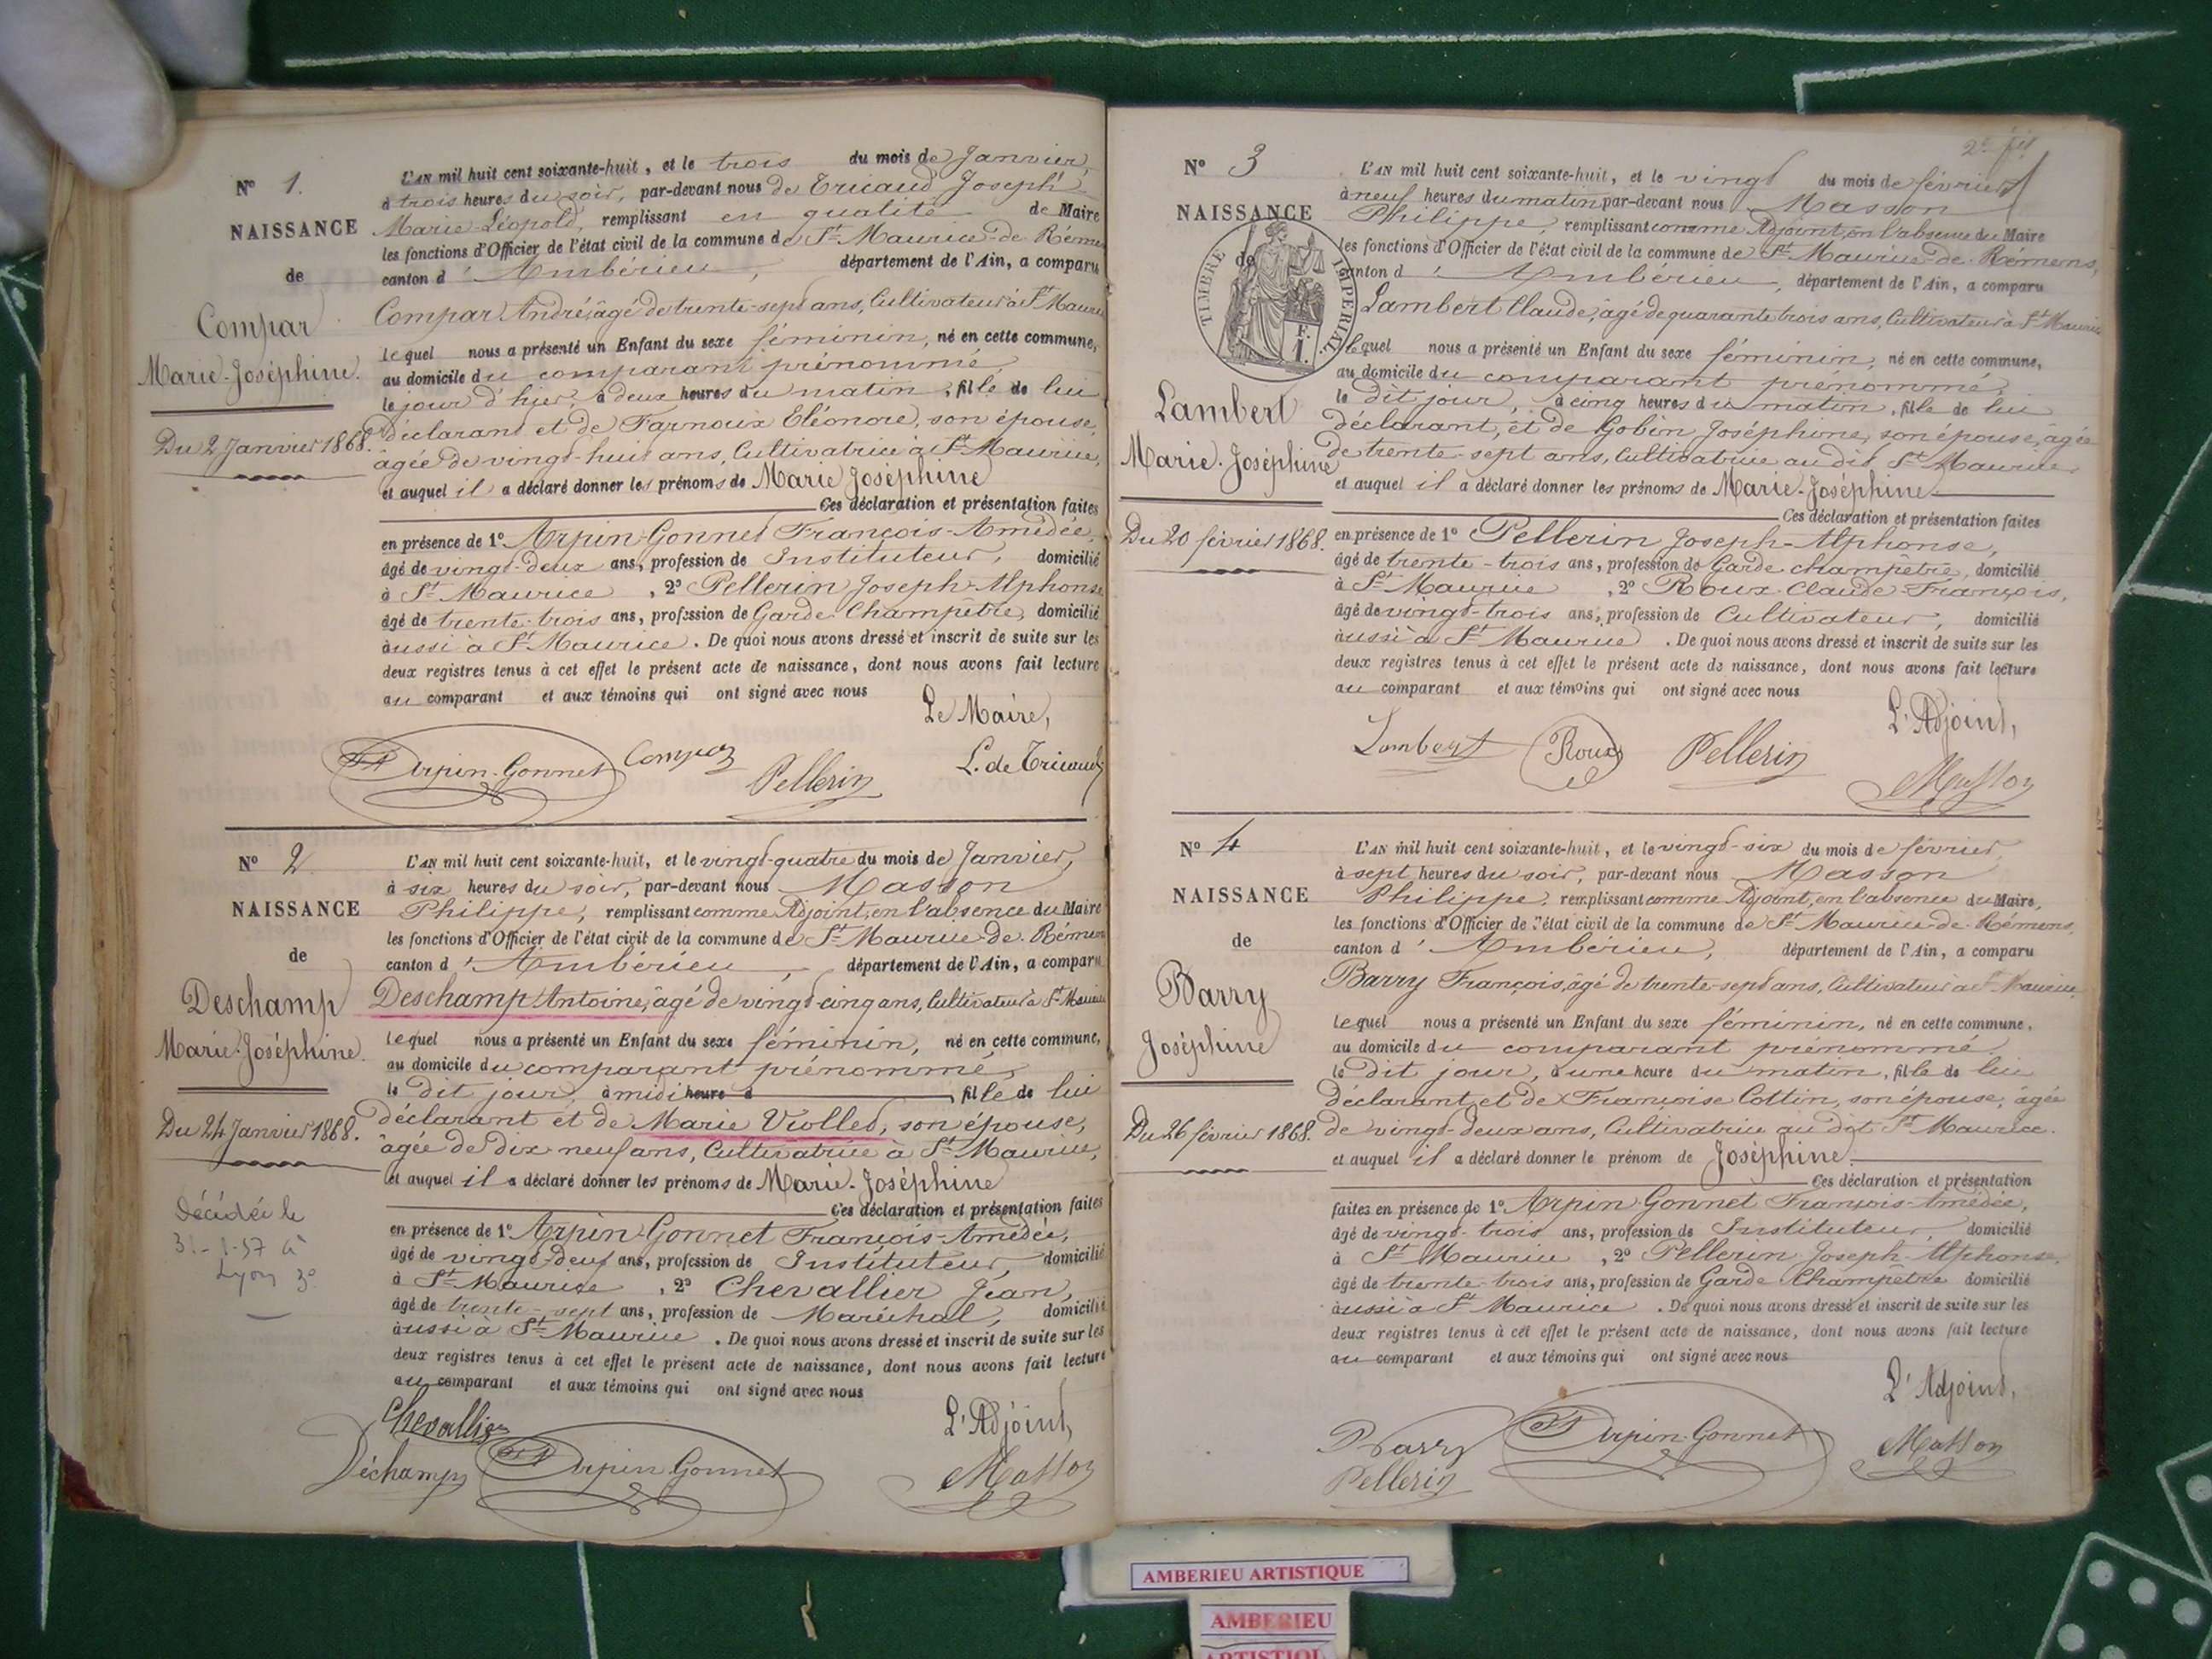 N° 1.
NAISSANCE
de
Compar
Marie-Joséphine.
Du 2 Janvier 1868.
L'AN mil huit cent soixante-huit, et le trois du mois de Janvier,
à trois heures du soir, par-devant nous de Tricaud Joseph
Marie-Léopold, remplissant en qualité de Maire
les fonctions d'Officier de l'état civil de la commune de St Maurice-de-Rémens
canton d'Ambérieu, département de l'Ain, a comparu
Compar André, âgé de trente-sept ans, Cultivateur à St Maurice
lequel nous a présenté un Enfant du sexe féminin, né en cette commune,
au domicile du comparant prénommé,
le jour d'hier, à deux heures du matin, fille de lui
déclarant et de Farnoux Eléonore, son épouse,
âgée de vingt-huit ans, Cultivatrice à St Maurice,
et auquel il a déclaré donner les prénoms de Marie Joséphine
Ces déclaration et présentation faites
en présence de 1° Arpin-Gonnet François-Amédée,
âgé de vingt-deux ans, profession de Instituteur, domicilié
à St Maurice, 2° Pellerin Joseph-Alphonse
âgé de trente-trois ans, profession de Garde Champêtre, domicilié
aussi à St Maurice. De quoi nous avons dressé et inscrit de suite sur les
deux registres tenus à cet effet le présent acte de naissance, dont nous avons fait lecture
au comparant et aux témoins qui ont signé avec nous
Le Maire,
Arpin-Gonnet Compar Pellerin L. de Tricaud
N° 2
NAISSANCE
de
Deschamp
Marie-Joséphine.
Du 24 Janvier 1868.
Décédée le
31-1-57 à
Lyon 3°
L'AN mil huit cent soixante-huit, et le vingt-quatre du mois de Janvier,
à six heures du soir, par-devant nous Masson
Philippe, remplissant comme Adjoint, en l'absence du Maire
les fonctions d'Officier de l'état civil de la commune de St Maurice-de-Rémens
canton d'Ambérieu, département de l'Ain, a comparu
Deschamp Antoine, âgé de vingt-cinq ans, Cultivateur à St Maurice
lequel nous a présenté un Enfant du sexe féminin, né en cette commune,
au domicile du comparant prénommé,
le dit jour, à midi heure d fille de lui
déclarant et de Marie Viollet, son épouse,
âgée de dix neuf ans, Cultivatrice à St Maurice,
et auquel il a déclaré donner les prénoms de Marie-Joséphine
Ces déclaration et présentation faites
en présence de 1° Arpin-Gonnet François-Amédée,
âgé de vingt-deux ans, profession de Instituteur, domicilié
à St Maurice, 2° Chevallier Jean,
âgé de trente-sept ans, profession de Maréchal, domicilié
aussi à St Maurice. De quoi nous avons dressé et inscrit de suite sur les
deux registres tenus à cet effet le présent acte de naissance, dont nous avons fait lecture
au comparant et aux témoins qui ont signé avec nous
Chevallier L'Adjoint,
Déchamp Arpin-Gonnet Masson
N° 3
NAISSANCE
de
TIMBRE IMPÉRIAL
F.
1.
Lambert
Marie-Joséphine
Du 20 février 1868.
L'AN mil huit cent soixante-huit, et le vingt du mois de février
à neuf heures du matin par-devant nous Masson
Philippe, remplissant comme Adjoint, en l'absence du Maire
les fonctions d'Officier de l'état civil de la commune de St Maurice-de-Rémens,
canton d'Ambérieu, département de l'Ain, a comparu
Lambert Claude, âgé de quarante trois ans, Cultivateur à St Maurice
lequel nous a présenté un Enfant du sexe féminin, né en cette commune,
au domicile du comparant prénommé,
le dit jour, à cinq heures du matin, fille de lui
déclarant, et de Gobin Joséphine, son épouse, âgée
de trente-sept ans, Cultivatrice au dit St Maurice
et auquel il a déclaré donner les prénoms de Marie-Joséphine
Ces déclaration et présentation faites
en présence de 1° Pellerin Joseph-Alphonse,
âgé de trente-trois ans, profession de Garde champêtre, domicilié
à St Maurice, 2° Roux Claude-François,
âgé de vingt-trois ans, profession de Cultivateur, domicilié
aussi à St Maurice. De quoi nous avons dressé et inscrit de suite sur les
deux registres tenus à cet effet le présent acte de naissance, dont nous avons fait lecture
au comparant et aux témoins qui ont signé avec nous
L'Adjoint,
Lambert Roux Pellerin Masson
N° 4
NAISSANCE
de
Barry
Joséphine
Du 26 février 1868.
L'AN mil huit cent soixante-huit, et le vingt-six du mois de février
à sept heures du soir, par-devant nous Masson
Philippe, remplissant comme Adjoint, en l'absence du Maire,
les fonctions d'Officier de l'état civil de la commune de St Maurice-de-Rémens,
canton d'Ambérieu, département de l'Ain, a comparu
Barry François, âgé de trente-sept ans, Cultivateur à St Maurice
lequel nous a présenté un Enfant du sexe féminin, né en cette commune,
au domicile du comparant prénommé,
le dit jour, à une heure du matin, fille de lui
déclarant, et de Françoise Cottin, son épouse, âgée
de vingt-deux ans, Cultivatrice au dit St Maurice.
et auquel il a déclaré donner le prénom de Joséphine.
Ces déclaration et présentation
faites en présence de 1° Arpin-Gonnet François-Amédée,
âgé de vingt-trois ans, profession de Instituteur, domicilié
à St Maurice, 2° Pellerin Joseph-Alphonse,
âgé de trente-trois ans, profession de Garde Champêtre domicilié
aussi à St Maurice. De quoi nous avons dressé et inscrit de suite sur les
deux registres tenus à cet effet le présent acte de naissance, dont nous avons fait lecture
au comparant et aux témoins qui ont signé avec nous
L'Adjoint,
Barry Arpin-Gonnet Masson
Pellerin
AMBERIEU ARTISTIQUE
AMBERIEU
ARTISTIQUE